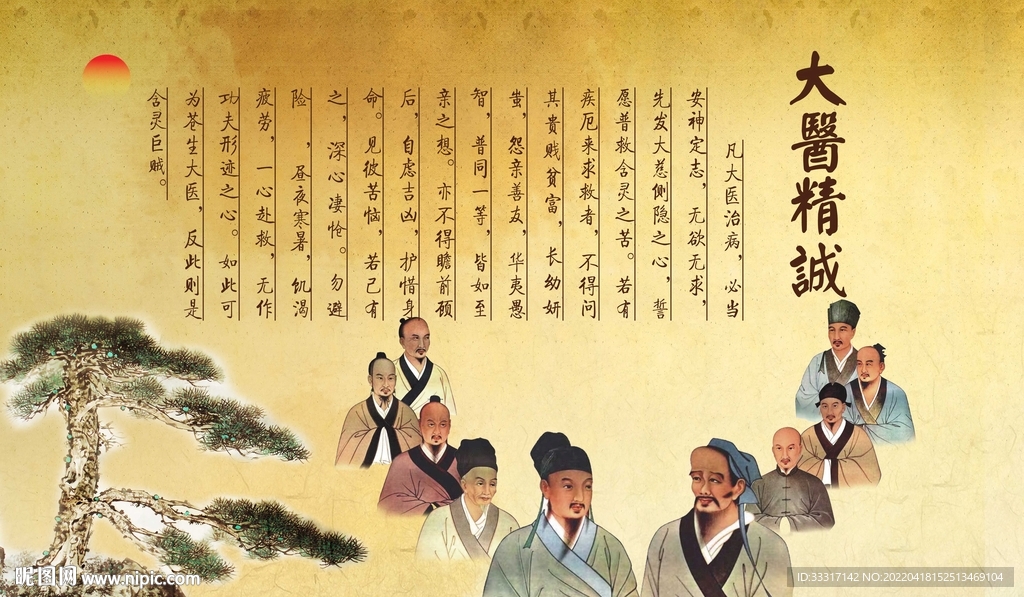 大醫精誠
凡大医治病，必当
安神定志，无欲无求，
先发大慈侧隐之心，誓
愿普救含灵之苦。若有
疾厄来求救者，不得问
其贵贱贫富，长幼妍
蚩，怨亲善友，华夷愚
智，普同一等，皆如至
亲之想。亦不得瞻前顾
后，自虑吉凶，护惜身
命。见彼苦恼，若己有
之，深心凄怆。勿避
险 ，昼夜寒暑，饥渴
疲劳，一心赴救，无作
功夫形迹之心。如此可
为苍生大医，反此则是
含灵巨贼。
昵图网 www.nipic.com
ID:33317142 NO:20220418152513469104